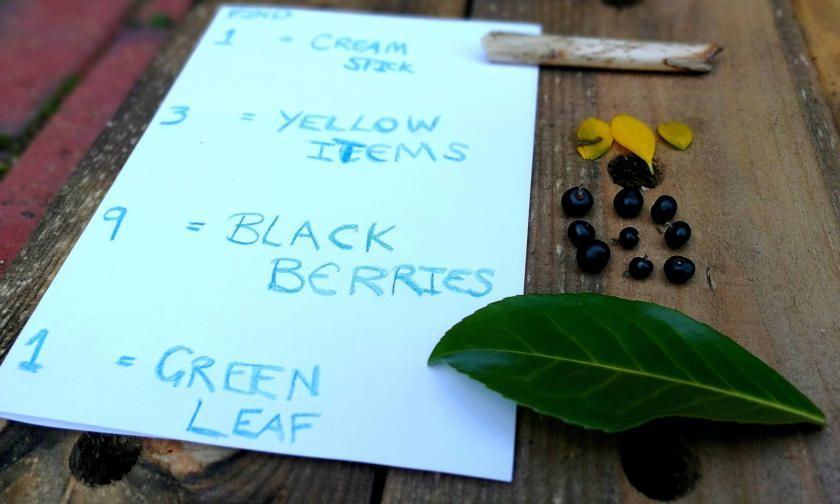 FIND
1 = CREAM
STICK
3 = YELLOW
ITEMS
9 = BLACK
BERRIES
1 = GREEN
LEAF